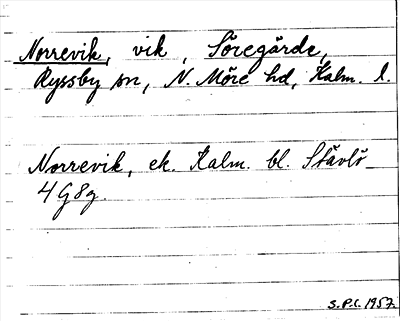 Norrevik, vik, Söregärde,
Ryssby sn, N. Möre hd, Kalm. l.
Norrevik, ek. Kalm. bl. Stävlö
4 G 8 g.
S.P.C. 1957